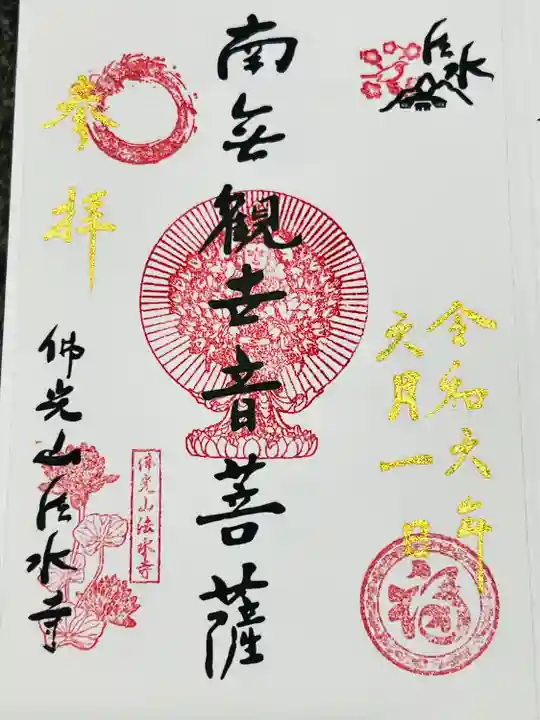 法水
令和六年
六月一日
南无観世音菩薩
参拝
佛光山法水寺
佛光山法水寺
福